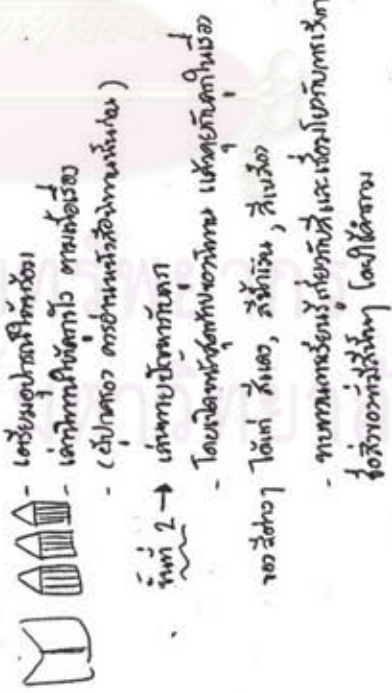 - เตรียมอุปกรณ์ให้พร้อม
- เล่านิทานให้เด็กฟัง ตามเนื้อเรื่อง
- (ผู้ปกครอง ควรอ่านหนังสือนิทานนั้นก่อน)
วันที่ 2 → เล่นทายปัญหากับเด็ก
- โดยเปิดหน้าสุดท้ายของนิทาน แล้วคุยกับเด็กในเรื่อง
ของสีต่างๆ ได้แก่ สีแดง, สีน้ำเงิน, สีเหลือง
- ทบทวนการเรียนรู้เกี่ยวกับสี และเชื่อมโยงกับการเรียก
ชื่อสิ่งของที่มีสีนั้นๆ โดยใช้คำถาม